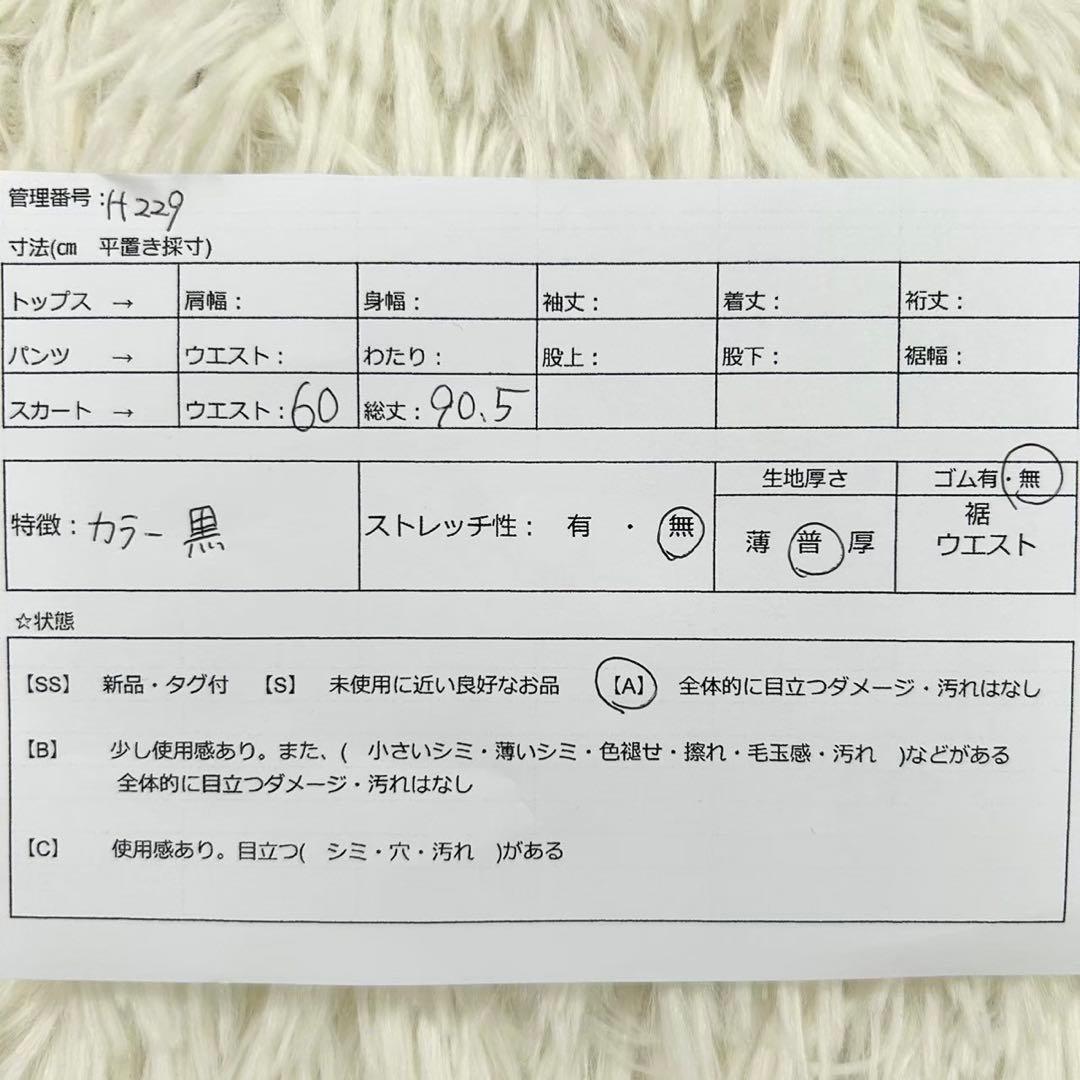 管理番号：H229
寸法(㎝ 平置き採寸)
トップス → 肩幅： 身幅： 袖丈： 着丈： 裄丈：
パンツ → ウエスト： わたり： 股上： 股下： 裾幅：
スカート → ウエスト：60 総丈：90.5
特徴：カラー 黒 ストレッチ性： 有 ・ 無
生地厚さ
薄 普 厚
ゴム有・無
裾
ウエスト
☆状態
【SS】 新品・タグ付 【S】 未使用に近い良好なお品 【A】 全体的に目立つダメージ・汚れはなし
【B】 少し使用感あり。また、( 小さいシミ・薄いシミ・色褪せ・擦れ・毛玉感・汚れ )などがある
全体的に目立つダメージ・汚れはなし
【C】 使用感あり。目立つ( シミ・穴・汚れ )がある